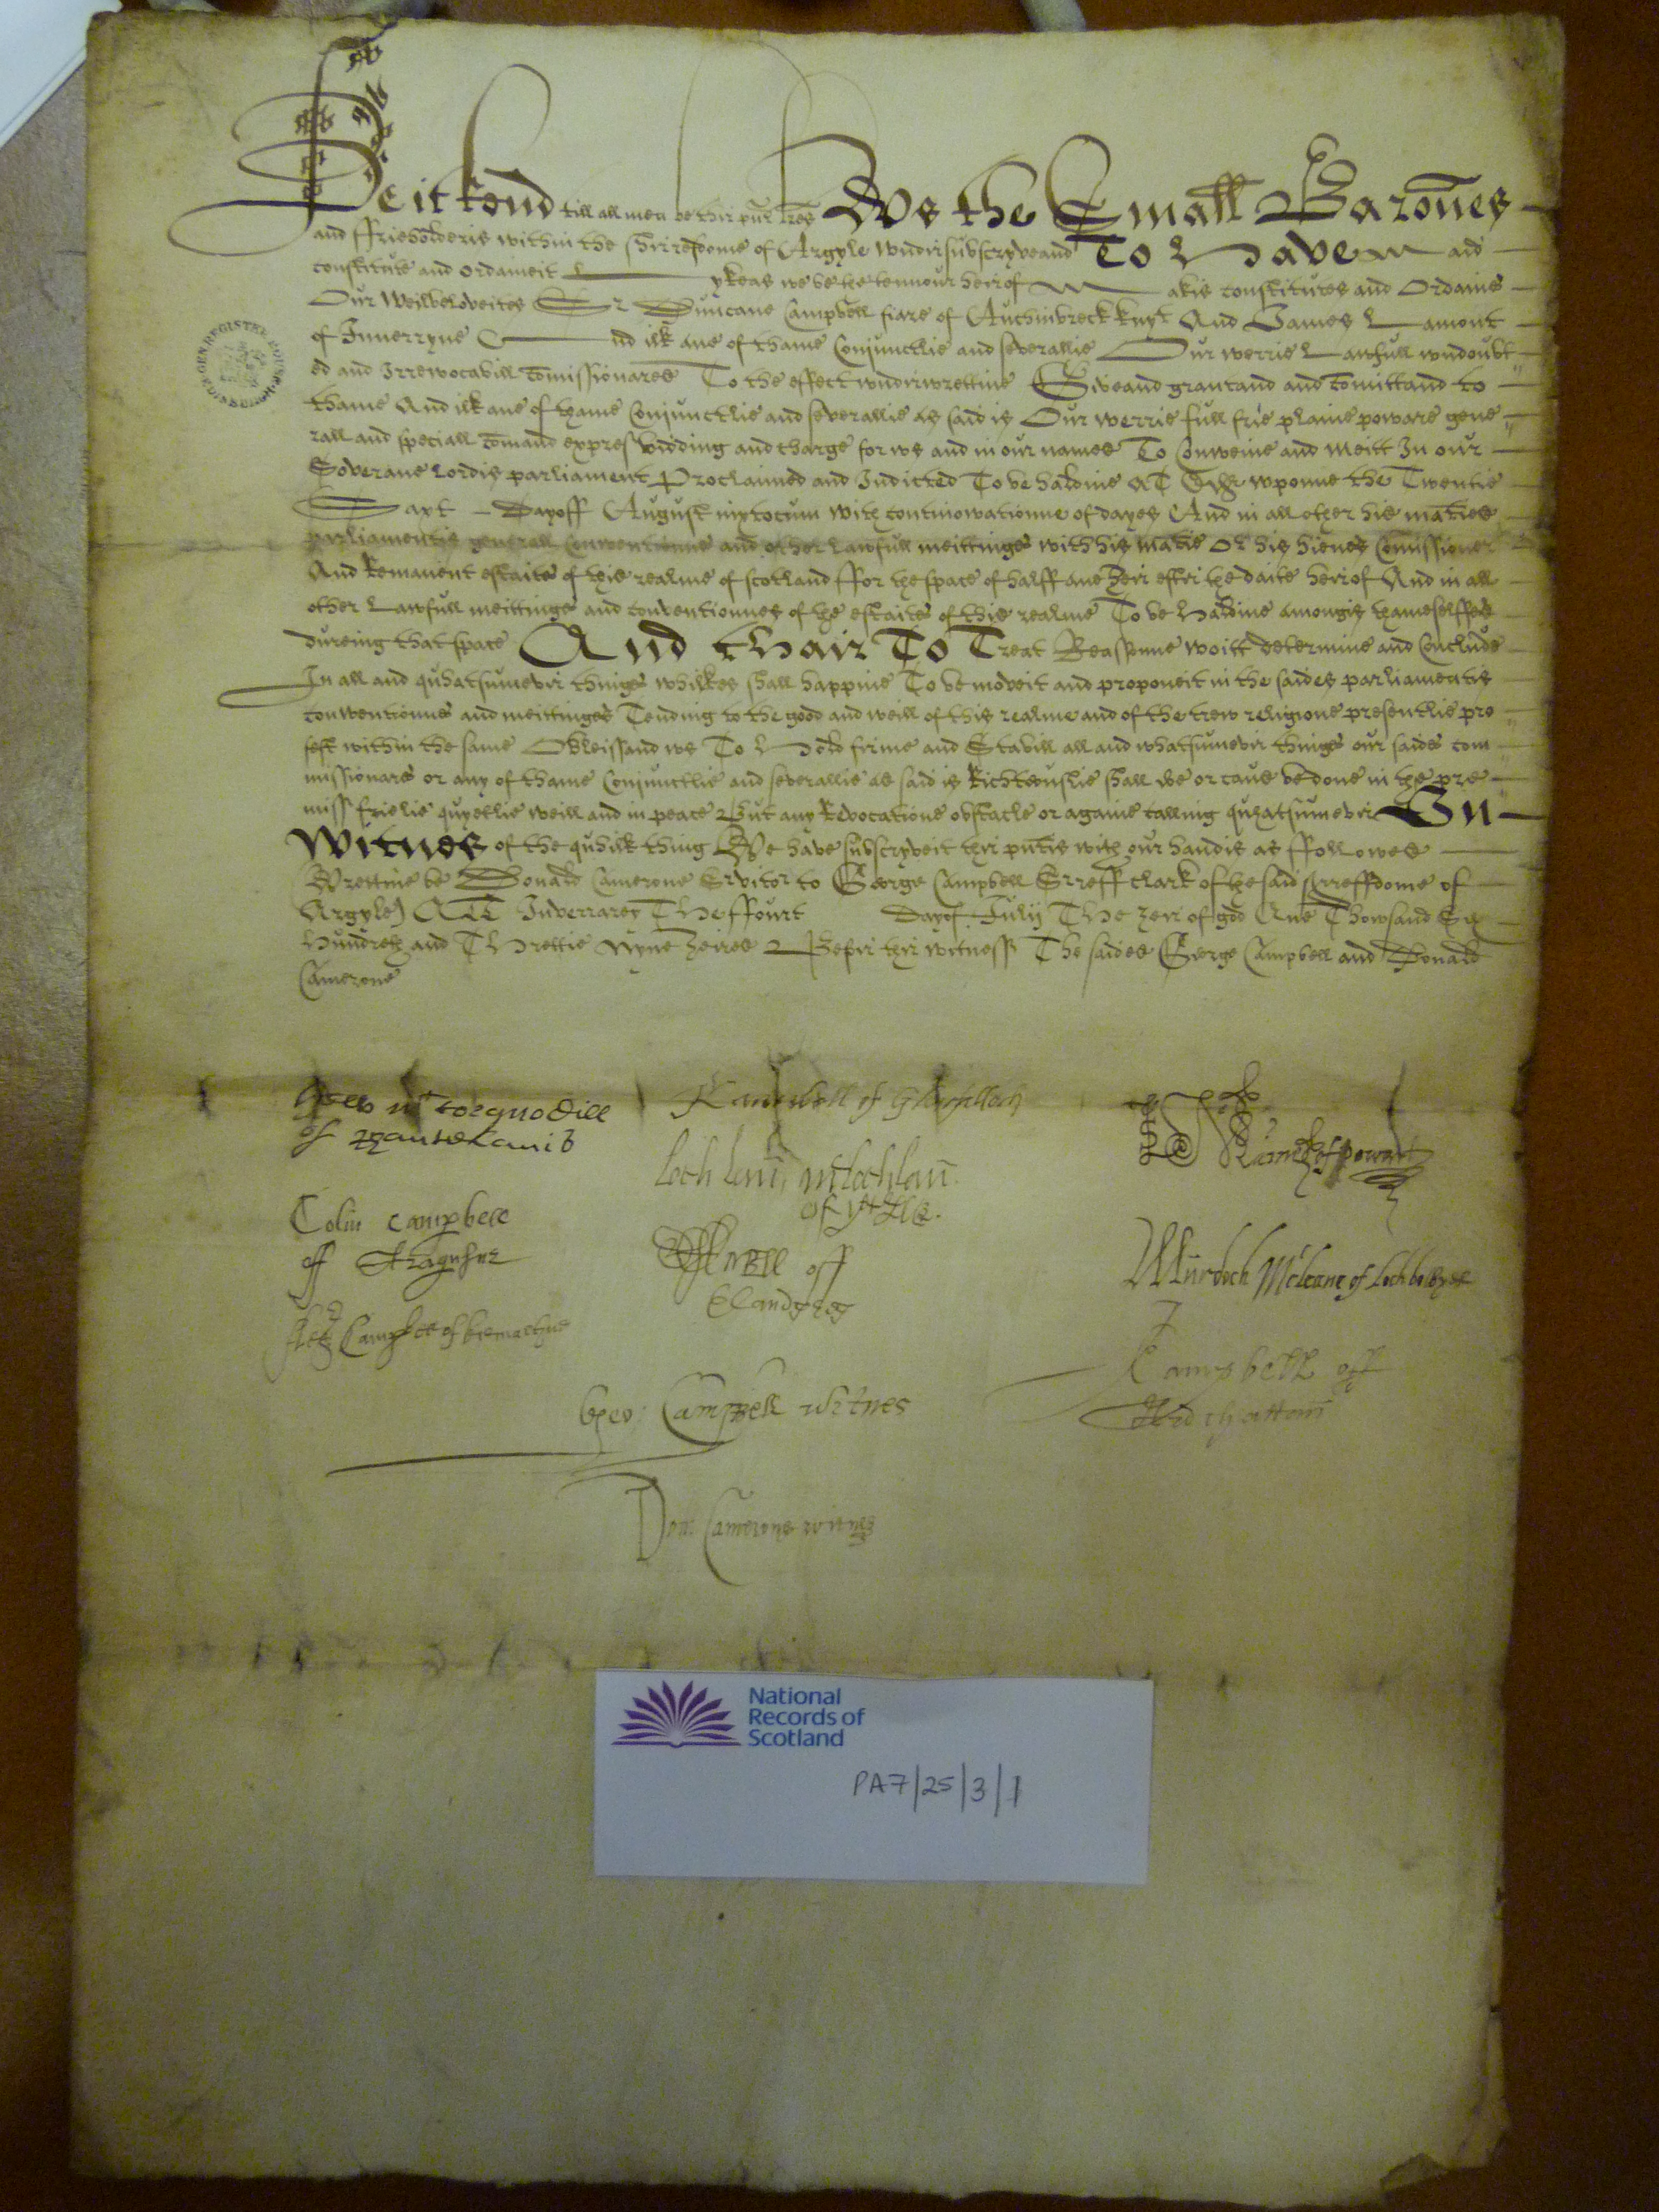 Be it kend till all men be thir pnt lres Ws the Small Barones
and ffrieholderis within the shirrefdome of Argyle wndirsubscryveand To Have Maid
constitute and ordaineit Lykeas we be the tennour heirof Makis constitutes and Ordains
Our Weilbeloveites Sr Duncane Campbell fiare of Auchinbreck knyt And James Lamont
of Innerryne And ilk ane of thame Conjunctlie and severallie Our werrie Lawfull wndoubt
ed and Irrevocabill Comissionares To the effect wndirwrettine Giveand grantand and Comittand to
thame And ilk ane of thame Conjunctlie and severallie as said is Our werrie full frie plaine poware gene
rall and speciall Comand expres bidding and charge for ws and in our names To Conweine and meitt In our
Soverane Lordis parliament Proclaimed and Indicted To be haldine At Edr wponne the Twentie
Saxt Day off August nixtocum with continowatioune of dayes And in all other his maties
parliamentis generall Conwentionnes and other Lawfull meittings with his matie or his hienes Comissioner
And Remanent estaits of this realme of scotland ffor the space of halff ane yeir efter the daite heirof And in all
other Lawfull meittings and conventionnes of the estaits of this realme To be Haldine amongis thameselffes
dureing that space And thair To Treat Reassonne voitt determine and Conclude
In all and quhatsumevir things whilkes shall happine To be moveit and proponeit in the saides parliamentis
conwentionns and meittinges Tending to the good and weill of this realme and of the trew religione presentlie pro
fest within the same Obleissand ws To Hold firme and Stabill all and whatsumevir things our saids com
missionars or any of thame Conjunctlie and severallie as said is Richteouslie shall doe or caus be done in the pre
miss frielie quyetlie weill and in peace But any Revocatione obstacle or againe calling quhatsumevir In
Witnes of the quhilk thing We have subscryveit thir pntis with our handis as ffollowes
Wrettine be Donald Camerone Servitor to George Campbell Sreff clark of the said Srreffdome of
Argyle) Att Inverraray The ffourt Day of Julij The yeir of god Ane Thowsand Sex
Hundreth and Threttie Nyne yeires Befoir thir witness The saides George Campbell and Donald
Camerone
Campbell of
Lamont of
Lochlan Mclachlan
of
Colin Campbell
off
Campbell off
Murdoch Mcleane of Lochbowye
Campbell of
Campbell off
Ardchattan
Geo: Campbell witnes
Don: Camerone witnes
National
Records of
Scotland
PA7/25/3/1